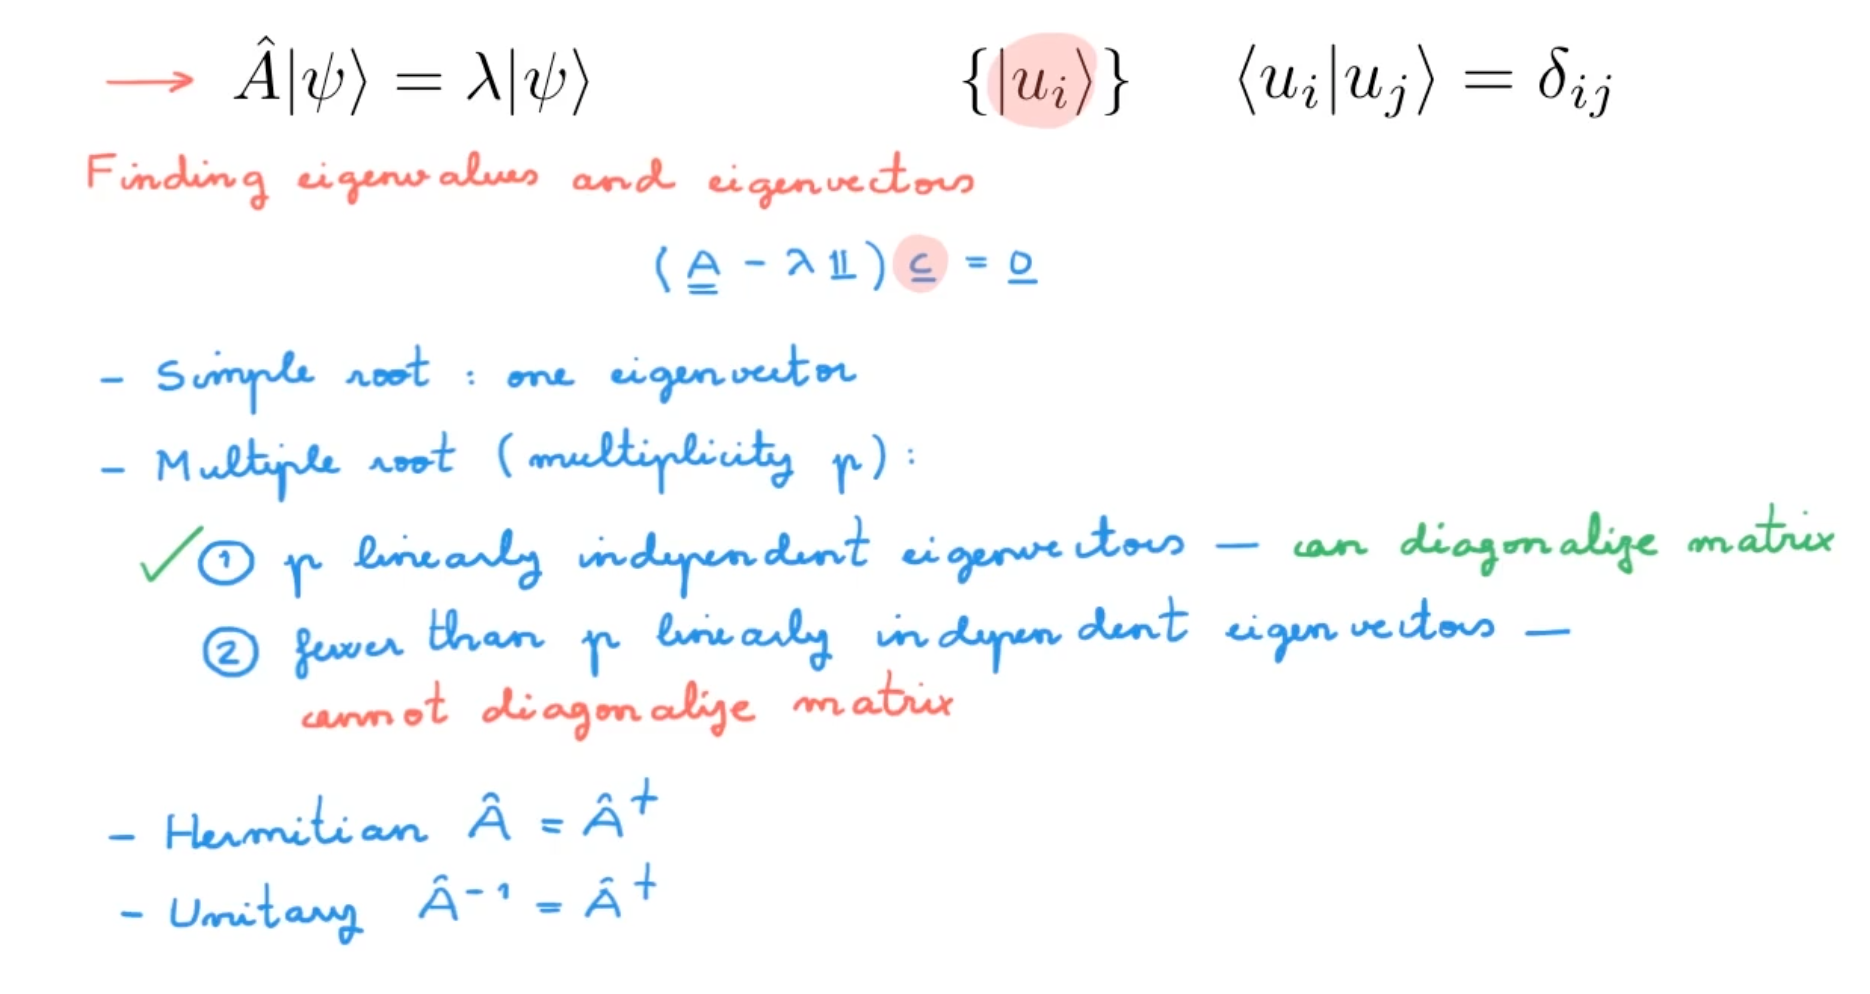 → Â|ψ⟩ = λ|ψ⟩ {|uᵢ⟩} ⟨uᵢ|uⱼ⟩ = δᵢⱼ
Finding eigenvalues and eigenvectors
(A - λ 𝟙) c = 0
- Simple root : one eigenvector
- Multiple root (multiplicity p) :
✓ ① p linearly independent eigenvectors — can diagonalize matrix
② fewer than p linearly independent eigenvectors —
cannot diagonalize matrix
- Hermitian Â = Â†
- Unitary Â⁻¹ = Â†